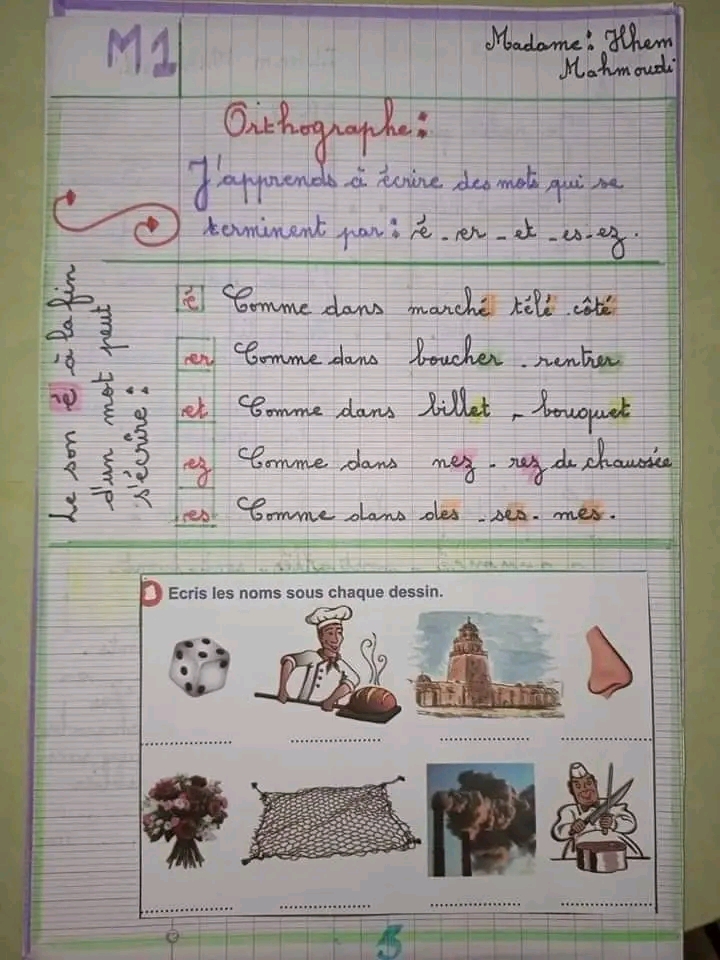 M1
Madame: Ilhem
Mahmoudi
Orthographe:
J'apprends à écrire des mots qui se
terminent par: é - er - et - es - ez.
Le son é à la fin
d'un mot peut
s'écrire:
é Comme dans marché télé côté
er Comme dans boucher - rentrer
et Comme dans billet - bouquet
ez Comme dans nez - rez de chaussée
es Comme dans des - ses - mes.
1 Ecris les noms sous chaque dessin.